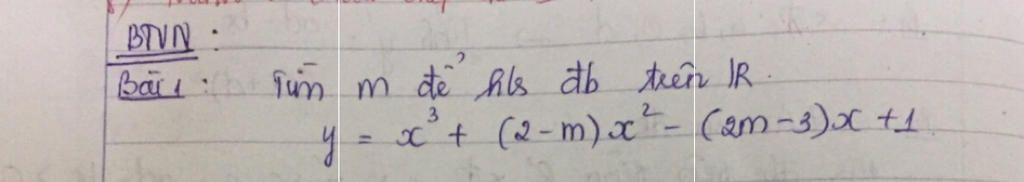 BTVN :
Bài 1 : Tìm m để h/s đb trên R.
y = x³ + (2-m)x² - (2m-3)x + 1